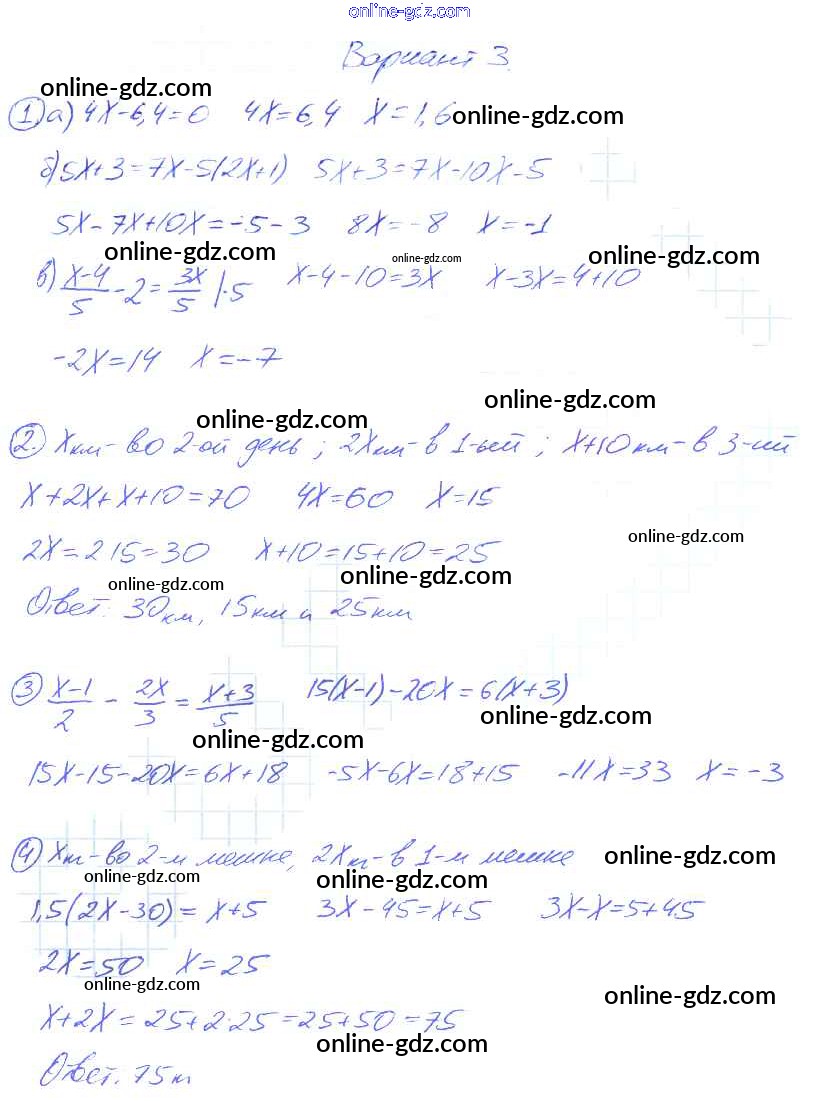 online-gdz.com
Вариант 3.
online-gdz.com
1) а) 4x-6,4=0 4x=6,4 x=1,6
online-gdz.com
б) 5x+3=7x-5(2x+1) 5x+3=7x-10x-5
5x-7x+10x=-5-3 8x=-8 x=-1
online-gdz.com online-gdz.com online-gdz.com
в) (x-4)/5 -2= 3x/5 |·5 x-4-10=3x x-3x=4+10
-2x=14 x=-7
online-gdz.com online-gdz.com
2. x км-во 2-ой день; 2x км-в 1-ый; x+10 км-в 3-ий
x+2x+x+10=70 4x=60 x=15
online-gdz.com
2x=2·15=30 x+10=15+10=25
online-gdz.com online-gdz.com
Ответ: 30 км, 15 км и 25 км
3) (x-1)/2 - 2x/3 = (x+3)/5 15(x-1)-20x=6(x+3)
online-gdz.com online-gdz.com
15x-15-20x=6x+18 -5x-6x=18+15 -11x=33 x=-3
4) x кг-во 2-м мешке, 2x кг-в 1-м мешке
online-gdz.com
online-gdz.com online-gdz.com
1,5(2x-30)=x+5 3x-45=x+5 3x-x=5+45
2x=50 x=25
online-gdz.com online-gdz.com
x+2x=25+2·25=25+50=75
online-gdz.com
Ответ. 75 кг